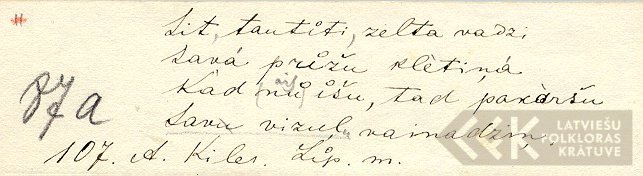 Sit, tautīti, zelta vadzi
Savā prūžu klētiņā
Kad nůišu, tad pakāršu
Savu vizuļu vainadziņ
87a
107. A. Kiles. Lip. m.
LATVIEŠU
FOLKLORAS
KRĀTUVE